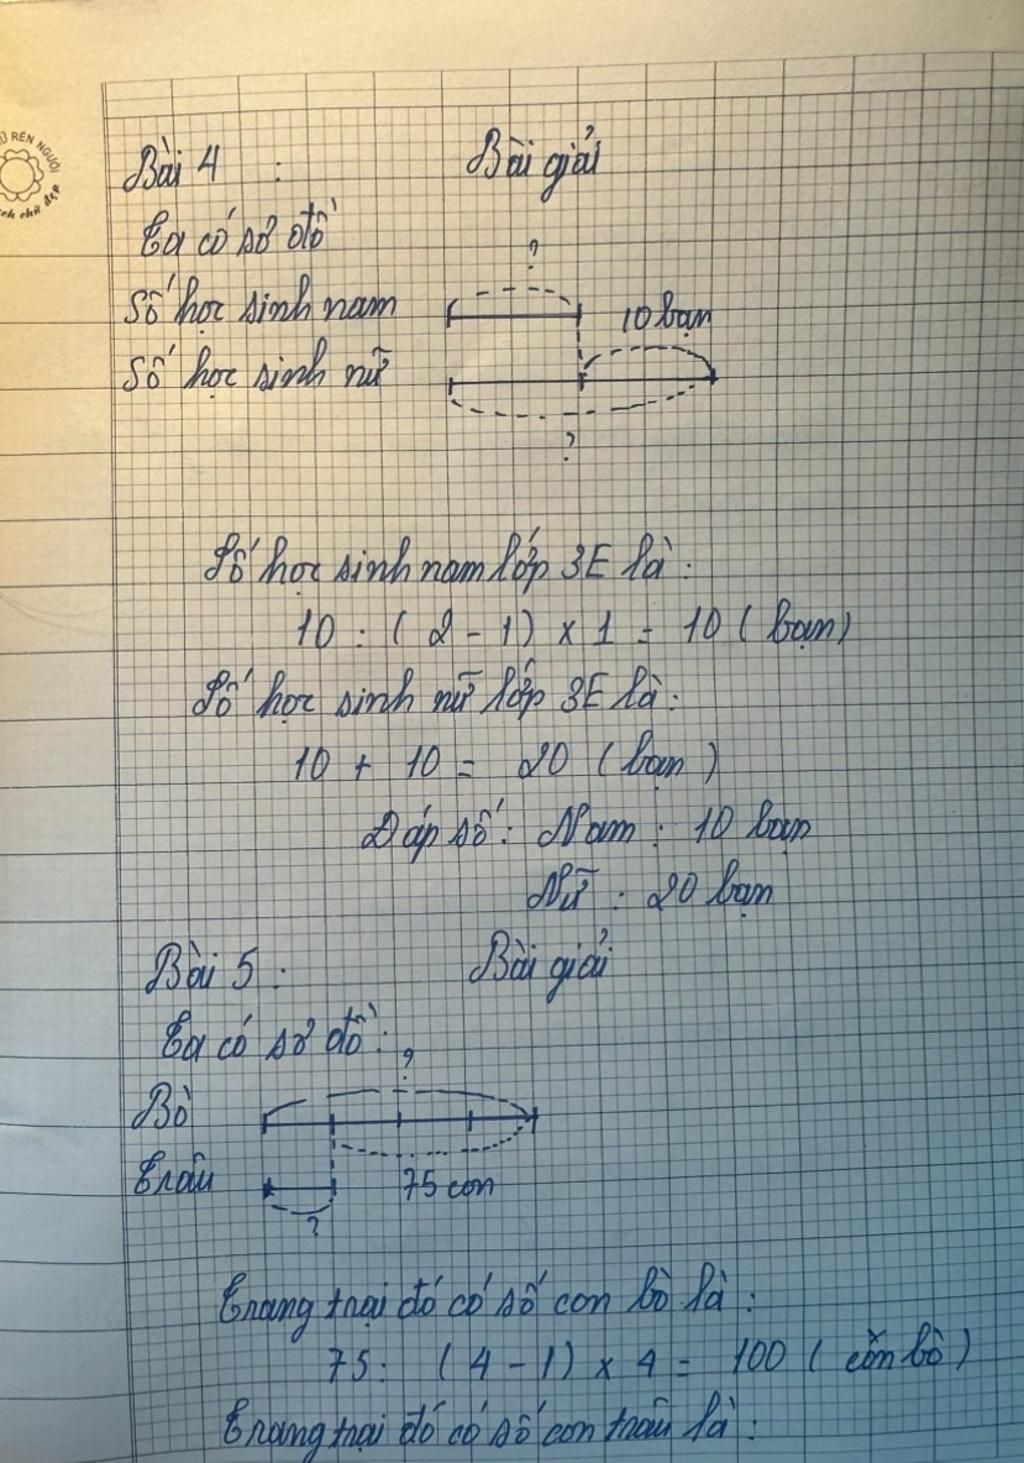 Ũ RÈN NGƯỜI
ch chữ đẹp
Bài 4 : Bài giải
Ta có sơ đồ
?
Số học sinh nam
10 bạn
Số học sinh nữ
?
Số học sinh nam lớp 3E là :
10 : ( 2 - 1 ) x 1 = 10 ( bạn )
Số học sinh nữ lớp 3E là :
10 + 10 = 20 ( bạn )
Đáp số : Nam : 10 bạn
Nữ : 20 bạn
Bài 5 : Bài giải
Ta có sơ đồ :
?
Bò
Trâu
75 con
?
Trang trại đó có số con bò là :
75 : ( 4 - 1 ) x 4 = 100 ( con bò )
Trang trại đó có số con trâu là :